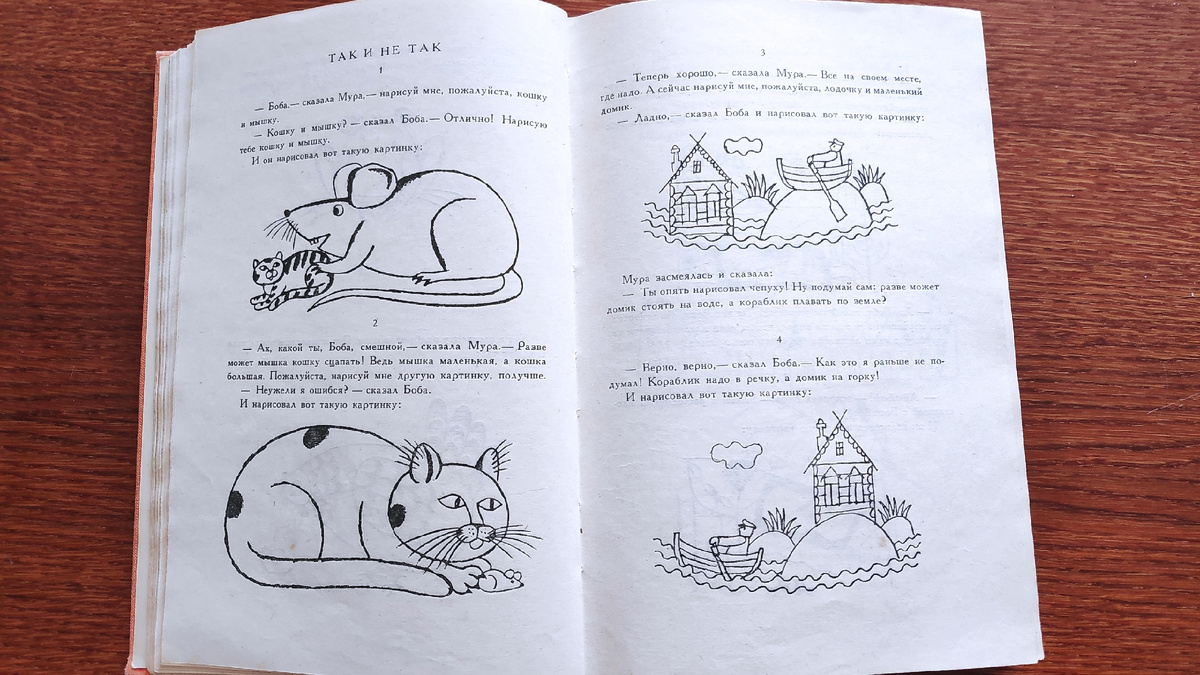 ТАК И НЕ ТАК
1
— Боба,— сказала Мура,— нарисуй мне, пожалуйста, кошку
и мышку.
— Кошку и мышку? — сказал Боба.— Отлично! Нарисую
тебе кошку и мышку.
И он нарисовал вот такую картинку:
2
— Ах, какой ты, Боба, смешной,— сказала Мура.— Разве
может мышка кошку сцапать! Ведь мышка маленькая, а кошка
большая. Пожалуйста, нарисуй мне другую картинку, получше.
— Неужели я ошибся? — сказал Боба.
И нарисовал вот такую картинку:
3
— Теперь хорошо,— сказала Мура.— Все на своем месте,
где надо. А сейчас нарисуй мне, пожалуйста, лодочку и маленький
домик.
— Ладно,— сказал Боба и нарисовал вот такую картинку:
Мура засмеялась и сказала:
— Ты опять нарисовал чепуху! Ну подумай сам: разве может
домик стоять на воде, а кораблик плавать по земле?
4
— Верно, верно,— сказал Боба.— Как это я раньше не по-
думал! Кораблик надо в речку, а домик на горку!
И нарисовал вот такую картинку: